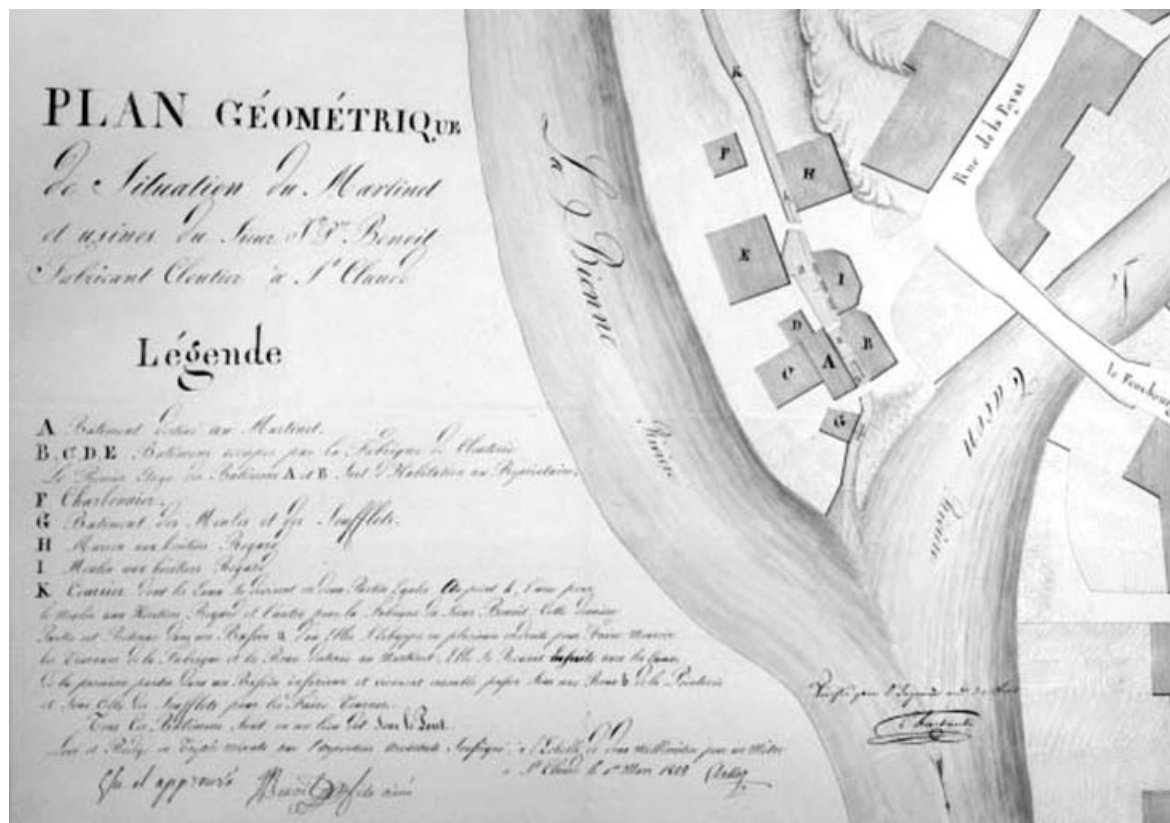 PLAN GÉOMÉTRIQUE
de Situation du Martinet
et usines du Sieur Benoit
Fabricant Cloutier à St Claude
Légende
A Batiment destiné au Martinet.
B, C D E Batimens occupés par la Fabrique de Clouterie
Le Premier Etage des Batimens A et B Sert d'Habitation au Propriétaire.
F Charbonnier.
G Batiment des Meules et des Soufflets.
H Maison aux héritiers Regard
I Moulin aux héritiers Regard
K Coursier dont les Eaux Se divisent en deux Parties Egales au point k. l'une pour
le Moulin aux Héritiers Regard et l'autre pour la Fabrique du Sieur Benoit. Cette dernière
Partie est Retenue dans un Bassin a d'où Elle S'échappe en plusieurs endroits pour Faire Mouvoir
les Tournans de la Fabrique et la Roue destinée au Martinet, Elle Se Réunit ensuite avec les Eaux
de la première partie dans un Bassin inférieur et viennent ensemble passer Sous une Roue b de la
et Sous celle des Soufflets pour les Faire Tourner.
Tous ces Batimens Sont en un lieu dit Sous le Pont.
Levé et Rédigé en Triple minute par l'Arpenteur Soussigné, à l'Echelle de deux millimètres pour un Mètre
à St Claude le 1er Mars 1829
Vu et approuvé Benoit fils ainé
La Bienne
Rivière
K
F
H
E
I
D
B
A
C
G
Rue de la Poyat
le Faubourg
Tacon
Rivière